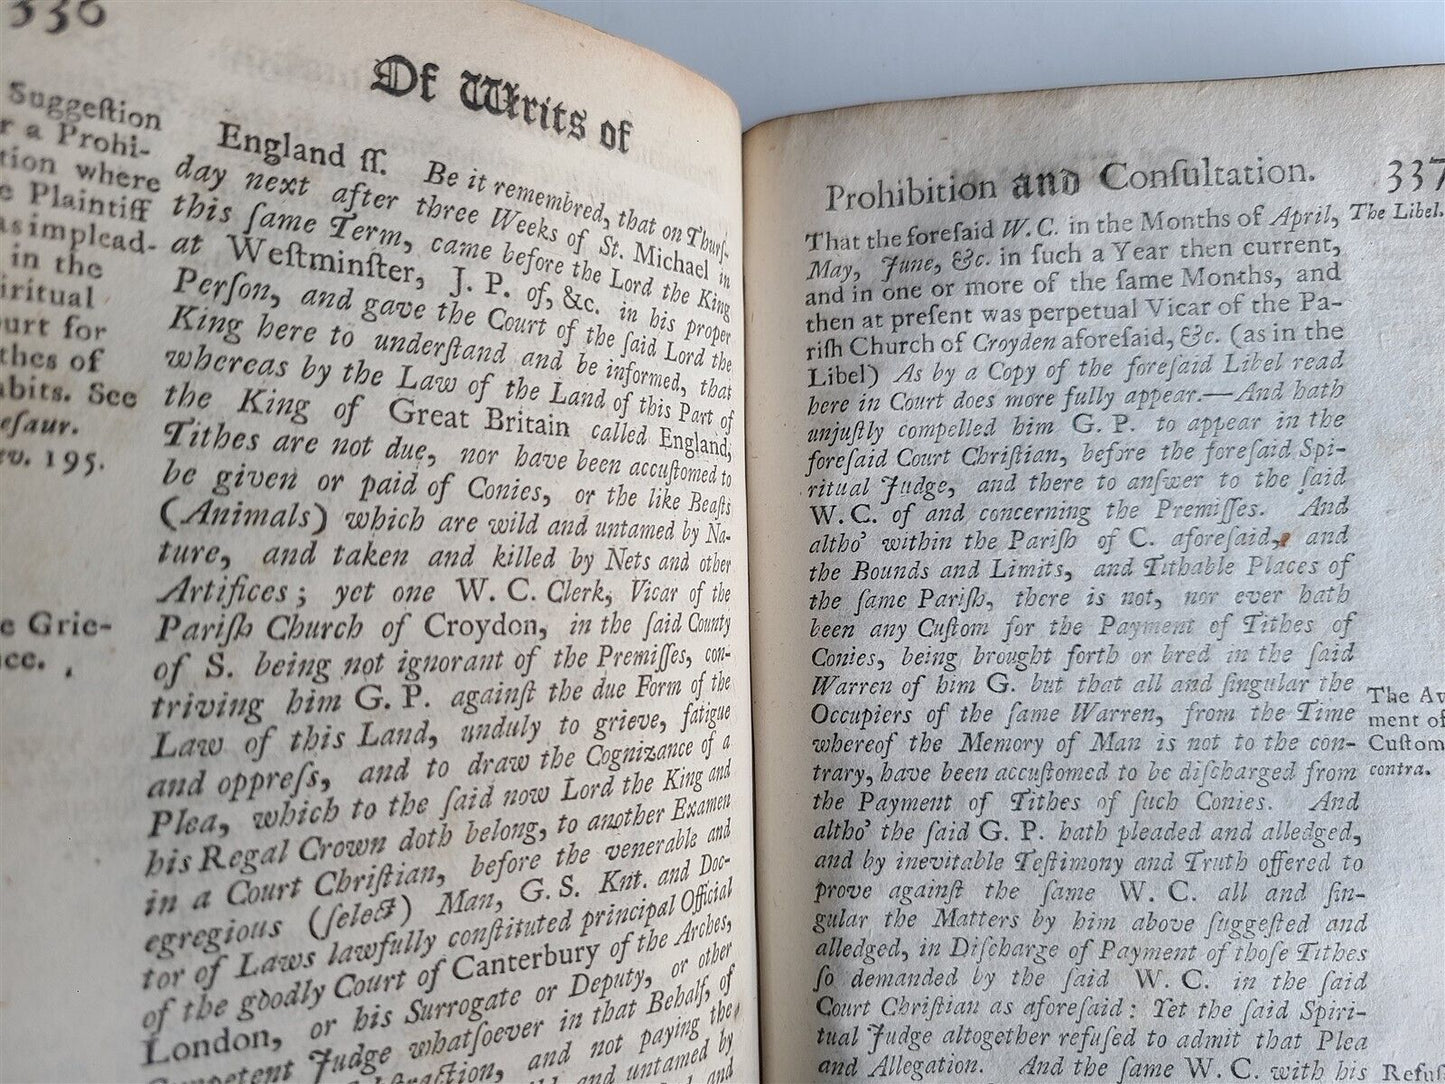 336
Of Writs of
Suggeſtion
r a Prohi-
tion where
e Plaintiff
as implead-
in the
iritual
ourt for
thes of
abits. See
eſaur.
ev. 195.
e Grie-
nce.
England ſſ. Be it remembred, that on Thurſ-
day next after three Weeks of St. Michael in
this ſame Term, came before the Lord the King
at Weſtminſter, J. P. of, &c. in his proper
Perſon, and gave the Court of the ſaid Lord the
King here to underſtand and be informed, that
whereas by the Law of the Land of this Part of
the King of Great Britain called England,
Tithes are not due, nor have been accuſtomed to
be given or paid of Conies, or the like Beaſts
(Animals) which are wild and untamed by Na-
ture, and taken and killed by Nets and other
Artifices; yet one W. C. Clerk, Vicar of the
Pariſh Church of Croydon, in the ſaid County
of S. being not ignorant of the Premiſſes, con-
triving him G. P. againſt the due Form of the
Law of this Land, unduly to grieve, fatigue
and oppreſs, and to draw the Cognizance of a
Plea, which to the ſaid now Lord the King and
his Regal Crown doth belong, to another Examen
in a Court Chriſtian, before the venerable and
egregious (ſelect) Man, G. S. Knt. and Doc-
tor of Laws lawfully conſtituted principal Official
of the goodly Court of Canterbury of the Arches,
London, or his Surrogate or Deputy, or other
Competent Judge whatſoever in that Behalf, of
and not paying the
and untamed by
and
Prohibition and Conſultation. 337
That the foreſaid W. C. in the Months of April,
May, June, &c. in ſuch a Year then current,
and in one or more of the ſame Months, and
then at preſent was perpetual Vicar of the Pa-
riſh Church of Croyden aforeſaid, &c. (as in the
Libel) As by a Copy of the foreſaid Libel read
here in Court does more fully appear.—And hath
unjuſtly compelled him G. P. to appear in the
foreſaid Court Chriſtian, before the foreſaid Spi-
ritual Judge, and there to anſwer to the ſaid
W. C. of and concerning the Premiſſes. And
altho' within the Pariſh of C. aforeſaid, and
the Bounds and Limits, and Tithable Places of
the ſame Pariſh, there is not, nor ever hath
been any Cuſtom for the Payment of Tithes of
Conies, being brought forth or bred in the ſaid
Warren of him G. but that all and ſingular the
Occupiers of the ſame Warren, from the Time
whereof the Memory of Man is not to the con-
trary, have been accuſtomed to be diſcharged from
the Payment of Tithes of ſuch Conies. And
altho' the ſaid G. P. hath pleaded and alledged,
and by inevitable Teſtimony and Truth offered to
prove againſt the ſame W. C. all and ſin-
gular the Matters by him above ſuggeſted and
alledged, in Diſcharge of Payment of thoſe Tithes
ſo demanded by the ſaid W. C. in the ſaid
Court Chriſtian as aforeſaid: Yet the ſaid Spiri-
tual Judge altogether refuſed to admit that Plea
and Allegation. And the ſame W. C. with his
The Libel.
The Av
ment of
Cuſtom
contra.
Refuſ